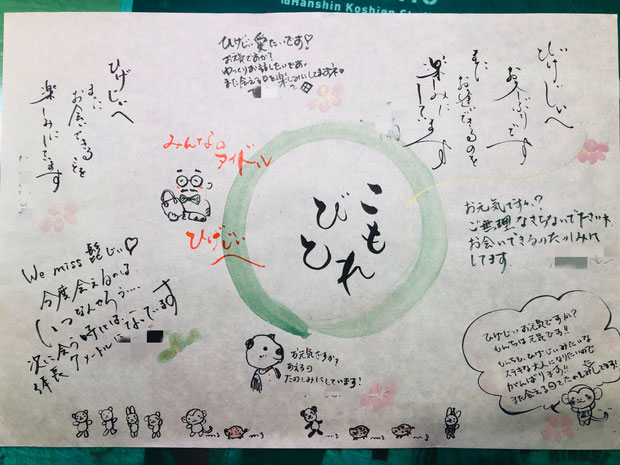 Hanshin Koshien
ひげじい愛たいです♡
お元気ですか?
ゆっくりお話ししたいです。
また会える日を楽しみにしてますネ。
ひげじいへ
お久しぶりです
また
お逢いできるのを
楽しみに
しています
ひげじいへ
また
お会いできることを
楽しみにしています
みんなの
アイドル
ひげじい
こもれ
びひ
お元気ですか?
ご無理なさらないで下さいネ
お会いできるのたのしみに
してます
We miss 髭じい♡
今度会えるのは
いつなんやろう……
次に会う時には、
なっています
お元気ですか?
あえるの
たのしみにしています!
ひげじいお元気ですか?
元気です!!
ひげじいみたいな
ステキな大人になりたいので
がんばります!!
また会えるのをたのしみにしてます!